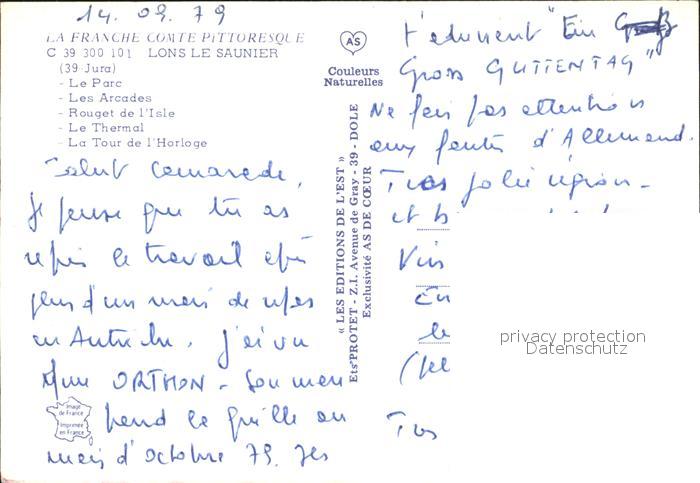 14.09.79
LA FRANCHE COMTE PITTORESQUE
C 39 300 101 LONS LE SAUNIER
(39 Jura)
- Le Parc
- Les Arcades
- Rouget de l'Isle
- Le Thermal
- La Tour de l'Horloge
Salut camarade,
Je pense que tu as
repris le travail après
plus d'un mois de repos
en Autriche. J'ai vu
Mme ORTHON - Son mari
prend la quille au
mois d'Octobre 79. Ils
Image de France
Imprimée en France
AS
Couleurs
Naturelles
« LES EDITIONS DE L'EST »
Ets PROTET - Z.I. Avenue de Gray - 39 - DOLE
Exclusivité AS DE CŒUR
t'adressent "Ein
Gross GUTTENTAG"
Ne fais pas attention
aux fautes d'Allemand.
Très jolie région -
et
Vin
En
le
privacy protection
Datenschutz